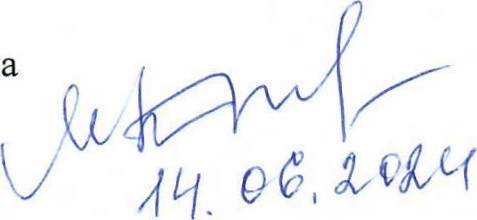 а
14.06.2024